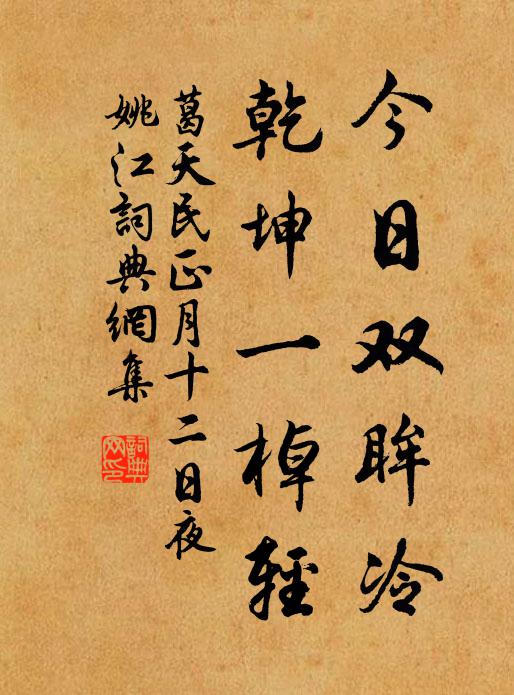 今日双眸冷
乾坤一棹輕
葛天民正月十二日夜
姚江詞典網集
詞典
网印